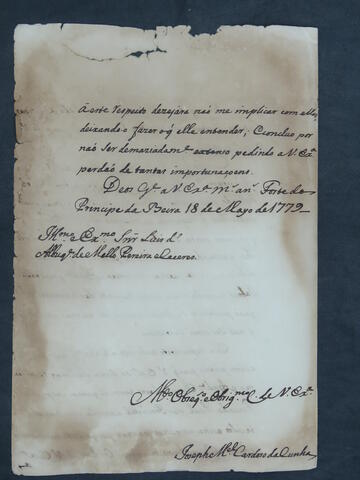 Á este respeito dezejára naõ me implicar com elle,
deixando-o fazer o q̃ elle entender; Concluo por
naõ ser demaziadamte. extenso pedindo a V. Exa.
perdaõ de tantas importunaçoens.
Deos Gde. a V. Exa. ms. ans. Forte do
Principe da Beira 18 de Mayo de 1779
Illmo. e Exmo. Snr. Luis d'
Albuqe. de Mello Pereira e Caceres.
De V. Exa.
Joseph Mel. Cardozo da Cunha